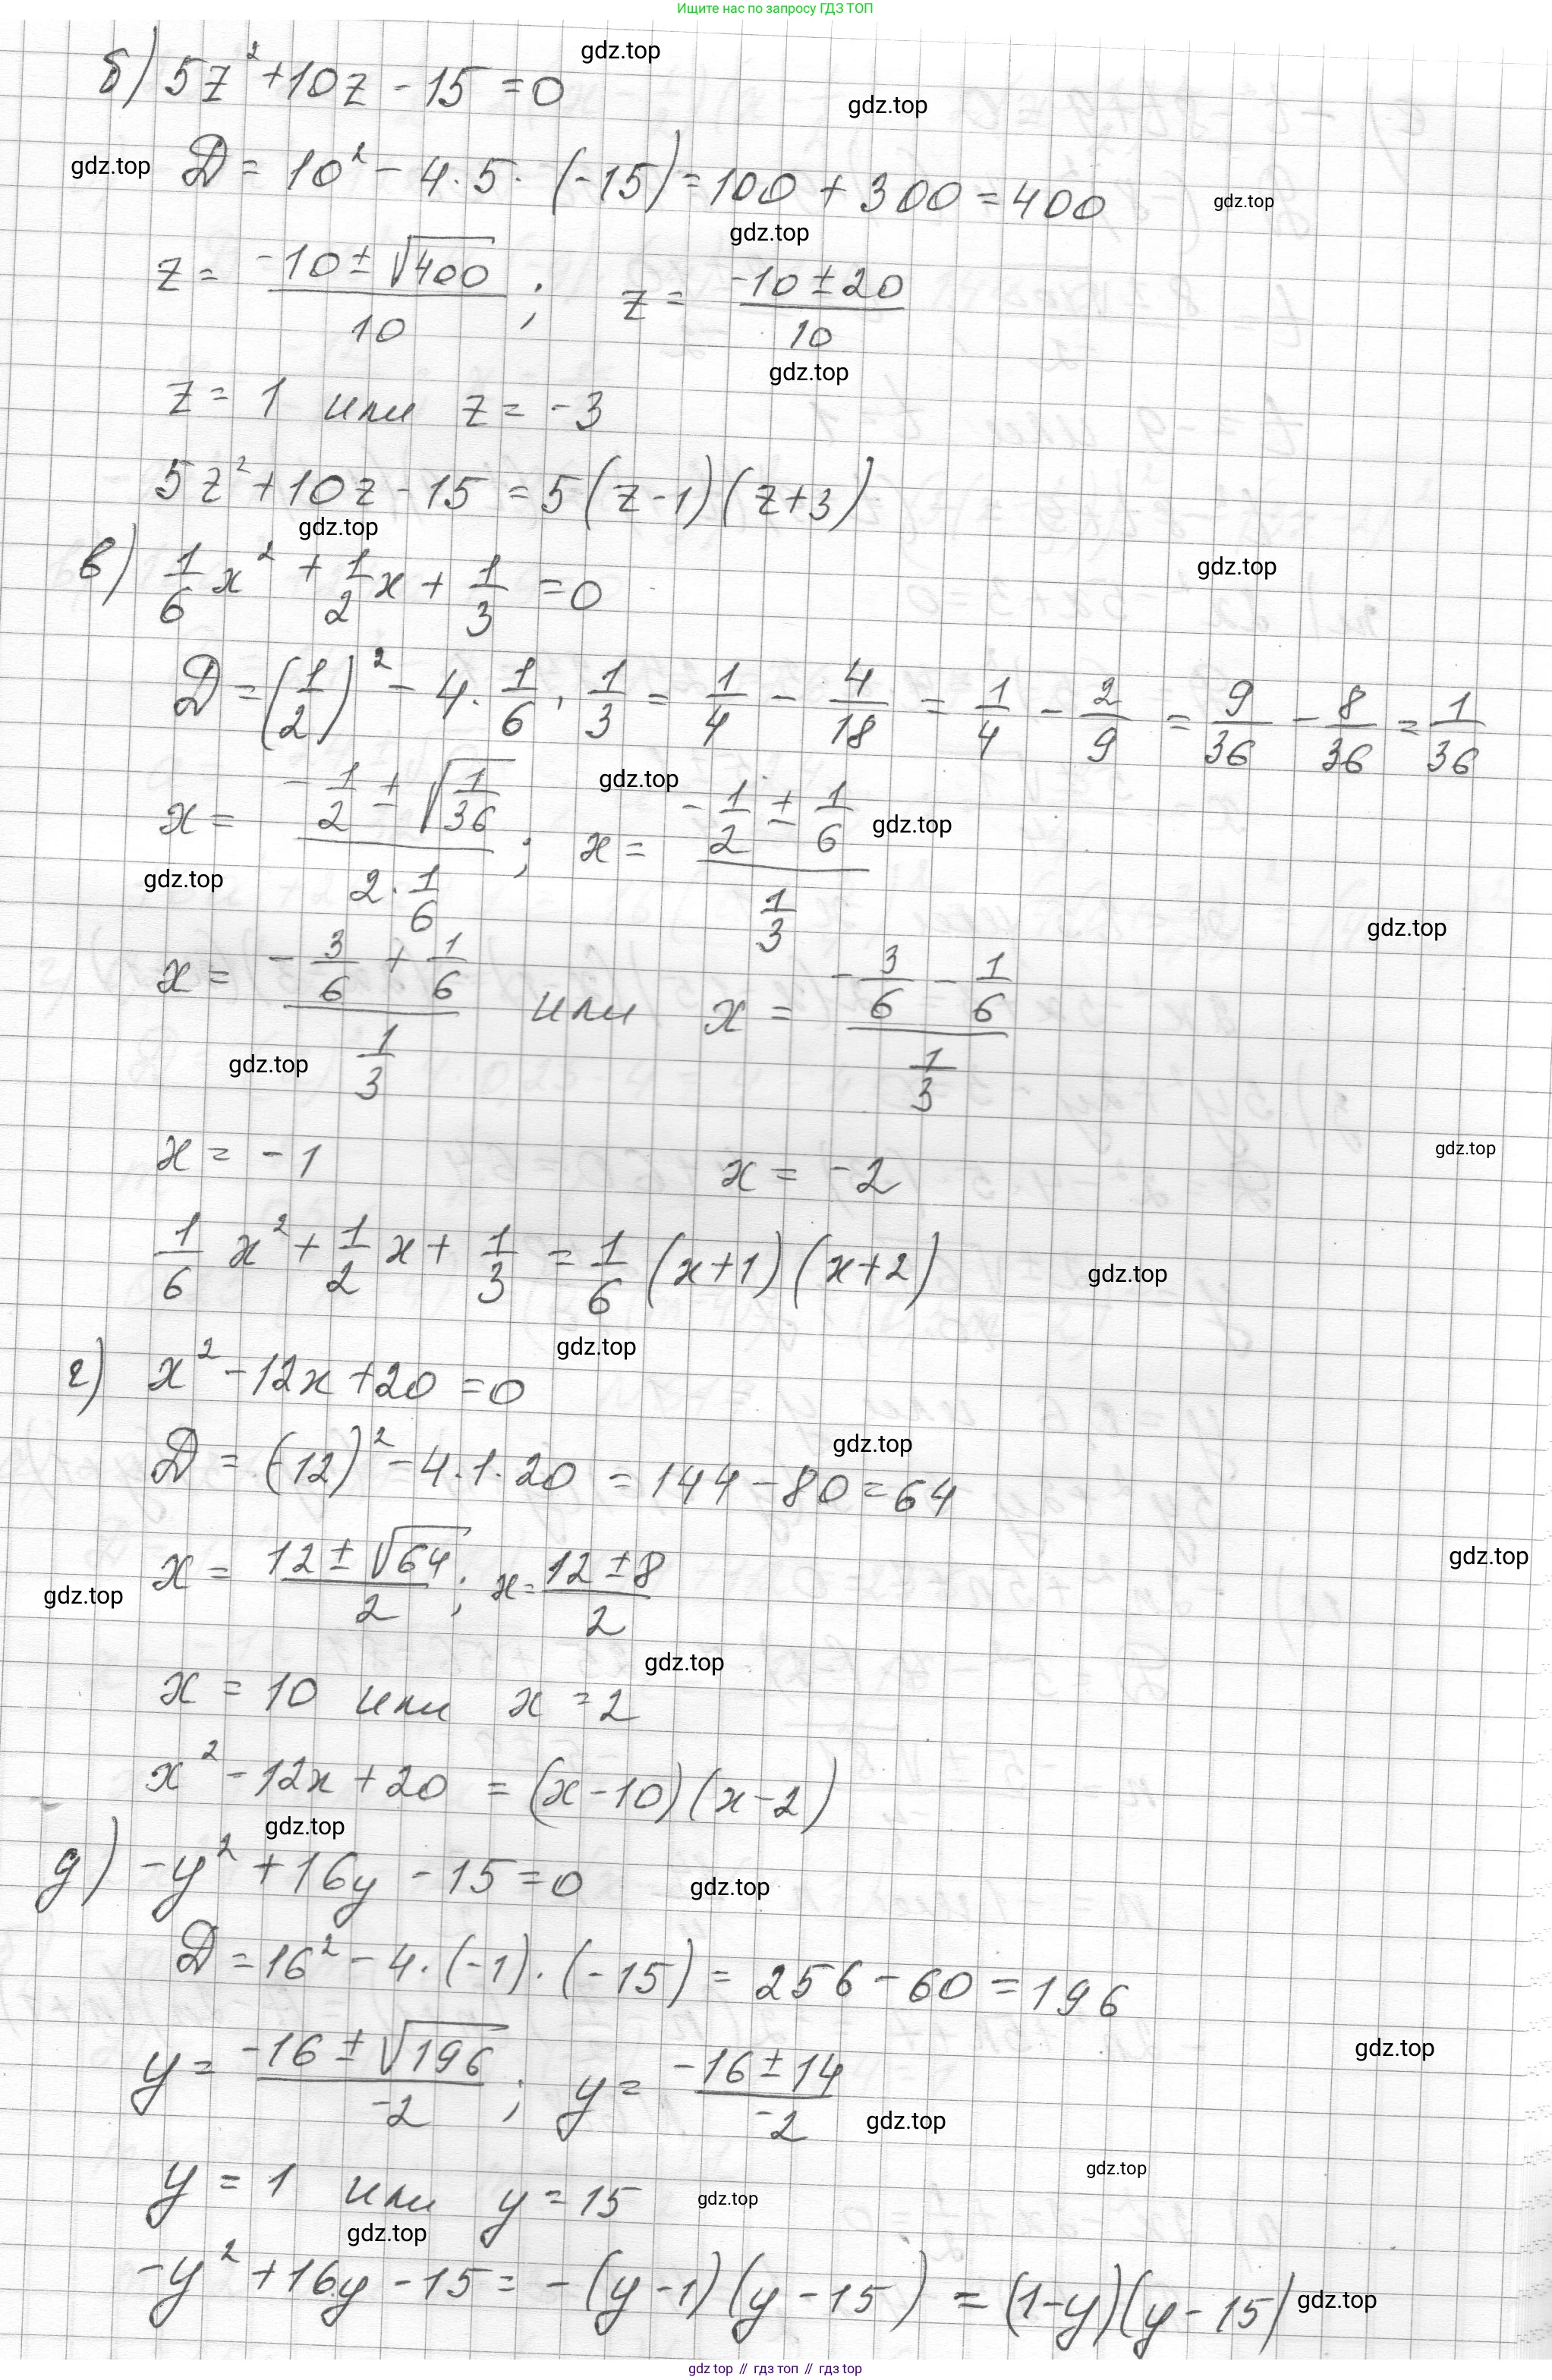 Ищите нас по запросу ГДЗ ТОП
gdz.top
б) 5z² + 10z - 15 = 0
gdz.top
gdz.top
D = 10² - 4·5·(-15) = 100 + 300 = 400
gdz.top
gdz.top
z = (-10 ± √400)/10 ; z = (-10 ± 20)/10
gdz.top
z = 1 или z = -3
5z² + 10z - 15 = 5(z-1)(z+3)
gdz.top
в) 1/6 x² + 1/2 x + 1/3 = 0
gdz.top
D = (1/2)² - 4·1/6·1/3 = 1/4 - 4/18 = 1/4 - 2/9 = 9/36 - 8/36 = 1/36
gdz.top
x = (-1/2 ± √(1/36))/(2·1/6) ; x = (-1/2 ± 1/6)/(1/3)
gdz.top
gdz.top
gdz.top
x = (-3/6 + 1/6)/(1/3) или x = (-3/6 - 1/6)/(1/3)
gdz.top
x = -1 x = -2
gdz.top
1/6 x² + 1/2 x + 1/3 = 1/6 (x+1)(x+2)
gdz.top
gdz.top
г) x² - 12x + 20 = 0
gdz.top
D = (-12)² - 4·1·20 = 144 - 80 = 64
x = (12 ± √64)/2 ; x = (12 ± 8)/2
gdz.top
gdz.top
gdz.top
x = 10 или x = 2
x² - 12x + 20 = (x-10)(x-2)
gdz.top
д) -y² + 16y - 15 = 0
gdz.top
D = 16² - 4·(-1)·(-15) = 256 - 60 = 196
gdz.top
y = (-16 ± √196)/-2 ; y = (-16 ± 14)/-2
gdz.top
gdz.top
y = 1 или y = 15
gdz.top
gdz.top
-y² + 16y - 15 = -(y-1)(y-15) = (1-y)(y-15)
gdz.top
gdz top // гдз топ // гдз top